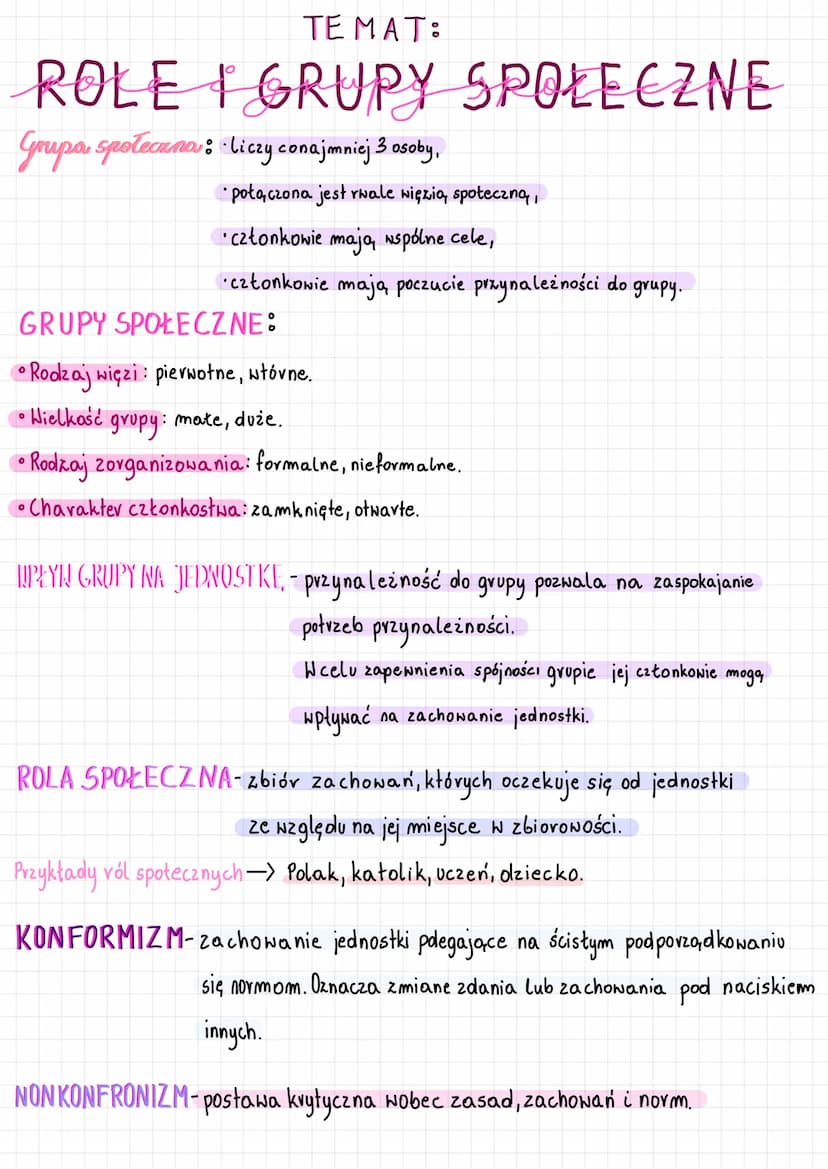 TEMAT:
ROLE I GRUPY SPOŁECZNE
role i grupy społeczne
Grupa społeczna: · liczy conajmniej 3 osoby,
· połączona jest rwale więzią społeczną,
· członkowie mają wspólne cele,
· członkowie mają poczucie przynależności do grupy.
GRUPY SPOŁECZNE:
• Rodzaj więzi: pierwotne, wtórne.
• Wielkość grupy: małe, duże.
• Rodzaj zorganizowania: formalne, nieformalne.
• Charakter członkostwa: zamknięte, otwarte.
WPŁYW GRUPY NA JEDNOSTKĘ - przynależność do grupy pozwala na zaspokajanie
potrzeb przynależności.
W celu zapewnienia spójności grupie jej członkowie mogą
wpływać na zachowanie jednostki.
ROLA SPOŁECZNA - zbiór zachowań, których oczekuje się od jednostki
ze względu na jej miejsce w zbiorowości.
Przykłady ról społecznych → Polak, katolik, uczeń, dziecko.
KONFORMIZM - zachowanie jednostki polegające na ścisłym podporządkowaniu
się normom. Oznacza zmiane zdania lub zachowania pod naciskiem
innych.
NONKONFRONIZM - postawa krytyczna wobec zasad, zachowań i norm.